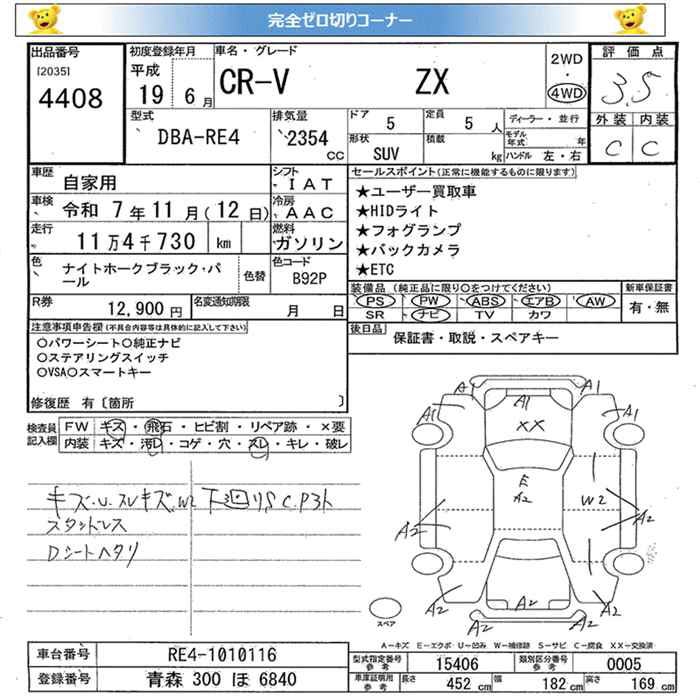 完全ゼロ切りコーナー
出品番号 初度登録年月 車名・グレード 2WD 評価点
[2035] 4408 平成 19 6月 CR-V ZX ・ 4WD 3.5
型式 排気量 ドア 5 定員 5人 ディーラー・並行 外装 内装
DBA-RE4 2354 cc 形状 SUV 積載 kg モデル年式 年 ハンドル 左・右 C C
車歴 自家用 シフト IAT セールスポイント(正常に機能するものに限ります)
車検 令和 7年11月(12日) 冷房 AAC ★ユーザー買取車
★HIDライト
走行 11万4千730 km 燃料 ガソリン ★フォグランプ
★バックカメラ
色 ナイトホークブラック・パール 色替 色コード B92P ★ETC
装備品 (純正品に限り○をつけてください) 新車保証書
PS PW ABS エアB AW 有・無
R券 12,900円 名変通知期限 月 日 SR ナビ TV カワ
注意事項申告欄(不具合内容等は具体的に記入して下さい) 後日品 保証書・取説・スペアキー
○パワーシート○純正ナビ
○ステアリングスイッチ
○VSA○スマートキー
修復歴 有〔箇所 〕
検査員記入欄 FW キズ・飛石・ヒビ割・リペア跡・×要
内装 キズ・汚レ・コゲ・穴・スレ・キレ・破レ
キズ.U.スレキズ.W2 下廻リS C.P3ト
スタットレス
Dシートヘタリ
A1 A1 A1
A1 A1
XX
E
A2 W2
A2 A2 A2
A2 A2 A2 A2
スペア
A-キズ E-エクボ U-凹み W-補修跡 S-サビ C-腐食 XX-交換済
車台番号 RE4-1010116 型式指定番号 参考 15406 類別区分番号 参考 0005
登録番号 青森 300 ほ 6840 車庫証明用 参考 長さ 452 cm 幅 182 cm 高さ 169 cm